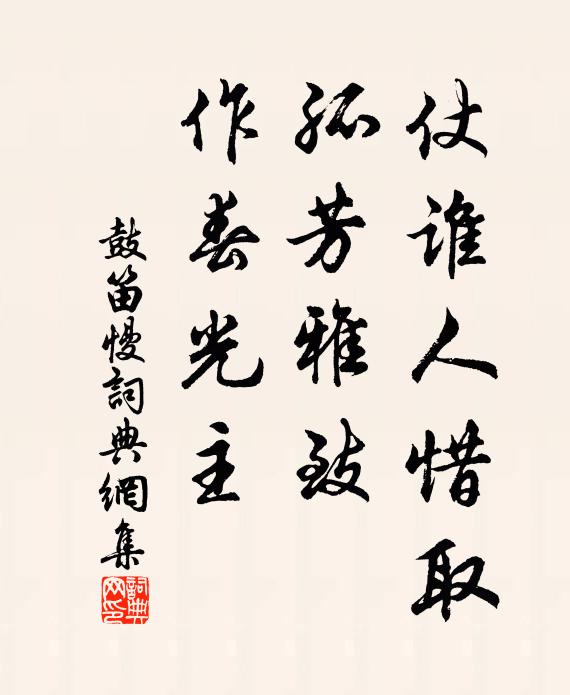 仗誰人惜取
孤芳雅致
作春光主
鼓笛慢詞典網集
詞典网印